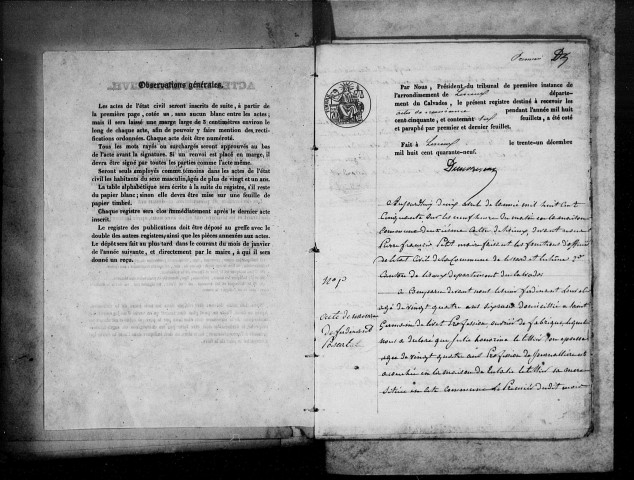 Observations générales.
Les actes de l'état civil seront inscrits de suite, à partir
de la première page, cotée un, sans aucun blanc entre les actes;
mais il sera laissé une marge large de 8 centimètres environ le
long de chaque acte, afin de pouvoir y faire mention des recti-
fications ordonnées. Chaque acte doit être numéroté.
Tous les mots rayés ou surchargés seront approuvés au bas
de l'acte avant la signature. Si un renvoi est placé en marge, il
devra être signé par toutes les parties comme l'acte même.
Seront seuls employés comme témoins dans les actes de l'état
civil les habitants du sexe masculin, âgés de plus de vingt et un ans.
La table alphabétique sera écrite à la suite du registre, s'il reste
du papier blanc; sinon elle devra être mise sur une feuille de
papier timbré.
Chaque registre sera clos immédiatement après le dernier acte
inscrit.
Le registre des publications doit être déposé au greffe avec le
double des autres registres, ainsi que les pièces annexées aux actes.
Le dépôt sera fait au plus tard dans le courant du mois de janvier
de l'année suivante, et directement par le maire, à qui il sera
donné un reçu.
Premier
Par Nous, Président du tribunal de première instance de
l'arrondissement de Lisieux départe-
ment du Calvados, le présent registre destiné à recevoir les
actes de naissance pendant l'année mil huit
cent cinquante, et contenant feuillets, a été coté
et paraphé par premier et dernier feuillet.
Fait à Lisieux le trente-un décembre
mil huit cent quarante-neuf.
Aujourd'hui deux du de l'année mil huit cent
Cinquante sur les neuf heures du matin en la maison
Commune devant nous
Pierre François Petit maire faisant les fonctions d'officier
de l'état Civil de la Commune de
Canton de Lisieux département du Calvados
N° 1er
acte de naissance
de ferdinand
a Comparu devant nous ferdinand Louis
agé de vingt quatre ans domicilié a Saint
Germain de Profession, ouvrier de fabrique, lequel
nous a déclaré que Julie honorine son epouse
agée de vingt quatre ans Profession de Journalière est
accouchée en la maison de sa mere
située en cette commune le Premier dudit mois